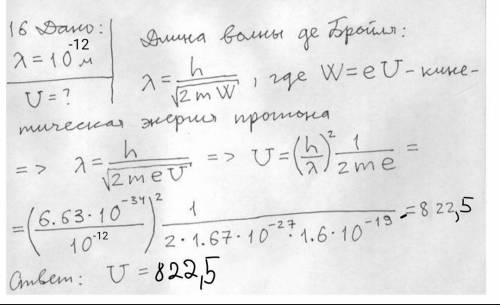 16 Дано: Длина волны де Бройля:
λ = 10⁻¹² м
U = ?
λ = h/√(2mW), где W = eU - кине-
тическая энергия протона
=> λ = h/√(2meU) => U = (h/λ)² 1/(2me) =
= (6.63·10⁻³⁴/10⁻¹²)² 1/(2·1.67·10⁻²⁷·1.6·10⁻¹⁹) = 822,5
Ответ: U = 822,5